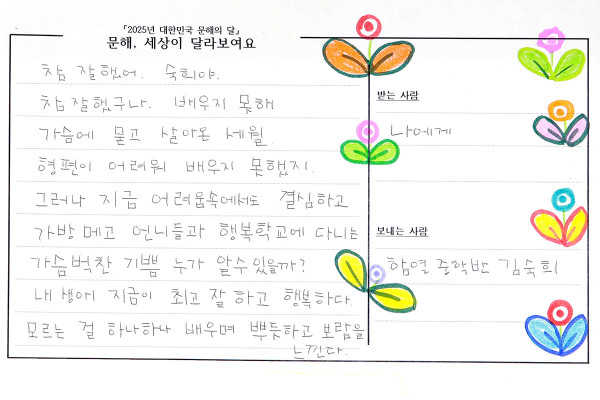 『2025년 대한민국 문해의 달』
문해, 세상이 달라보여요
참 잘했어. 숙희야.
참 잘했구나. 배우지 못해
가슴에 묻고 살아온 세월.
형편이 어려워 배우지 못했지.
그러나 지금 어려움속에서도 결심하고
가방 메고 언니들과 행복학교에 다니는
가슴벅찬 기쁨 누가 알수 있을까?
내 생애 지금이 최고 잘 하고 행복하다.
모르는 걸 하나하나 배우며 뿌듯하고 보람을
느낀다.
받는 사람
나에게
보내는 사람
함열 중학반 김숙희